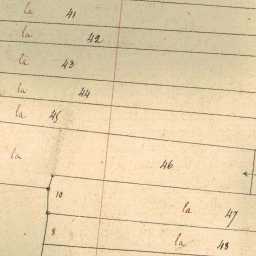 la 41
la 42
la 43
la 44
la 45
la 46
10
la 47
8 la 48